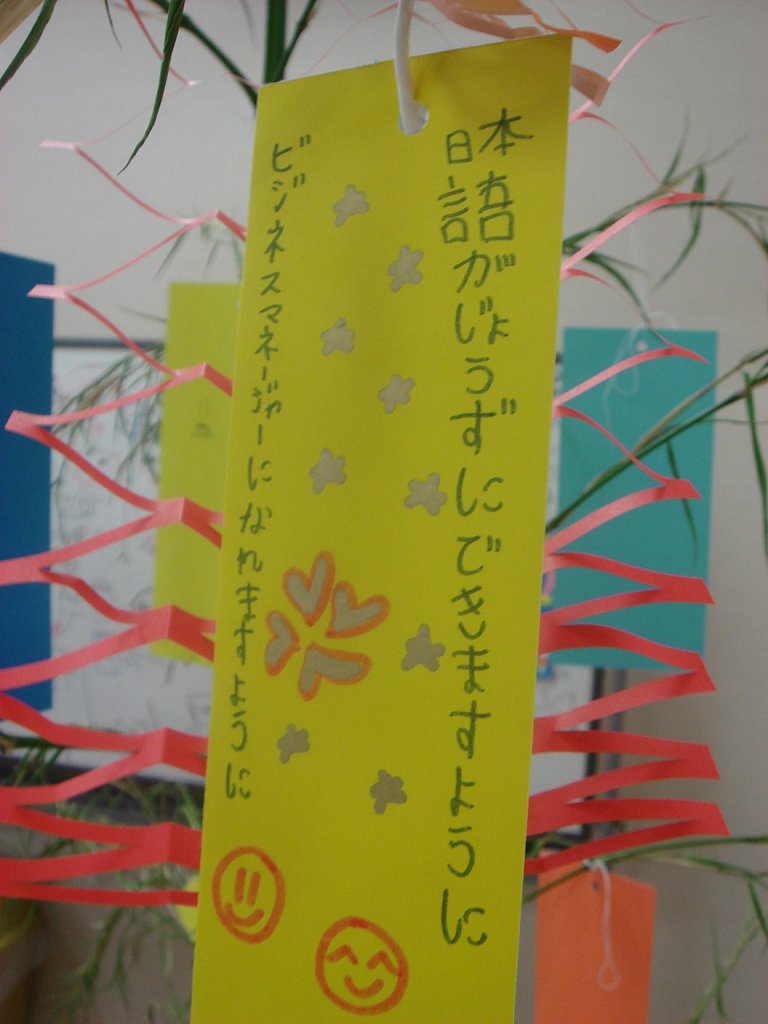 日本語がじょうずにできますように
ビジネスマネージャーになれますように